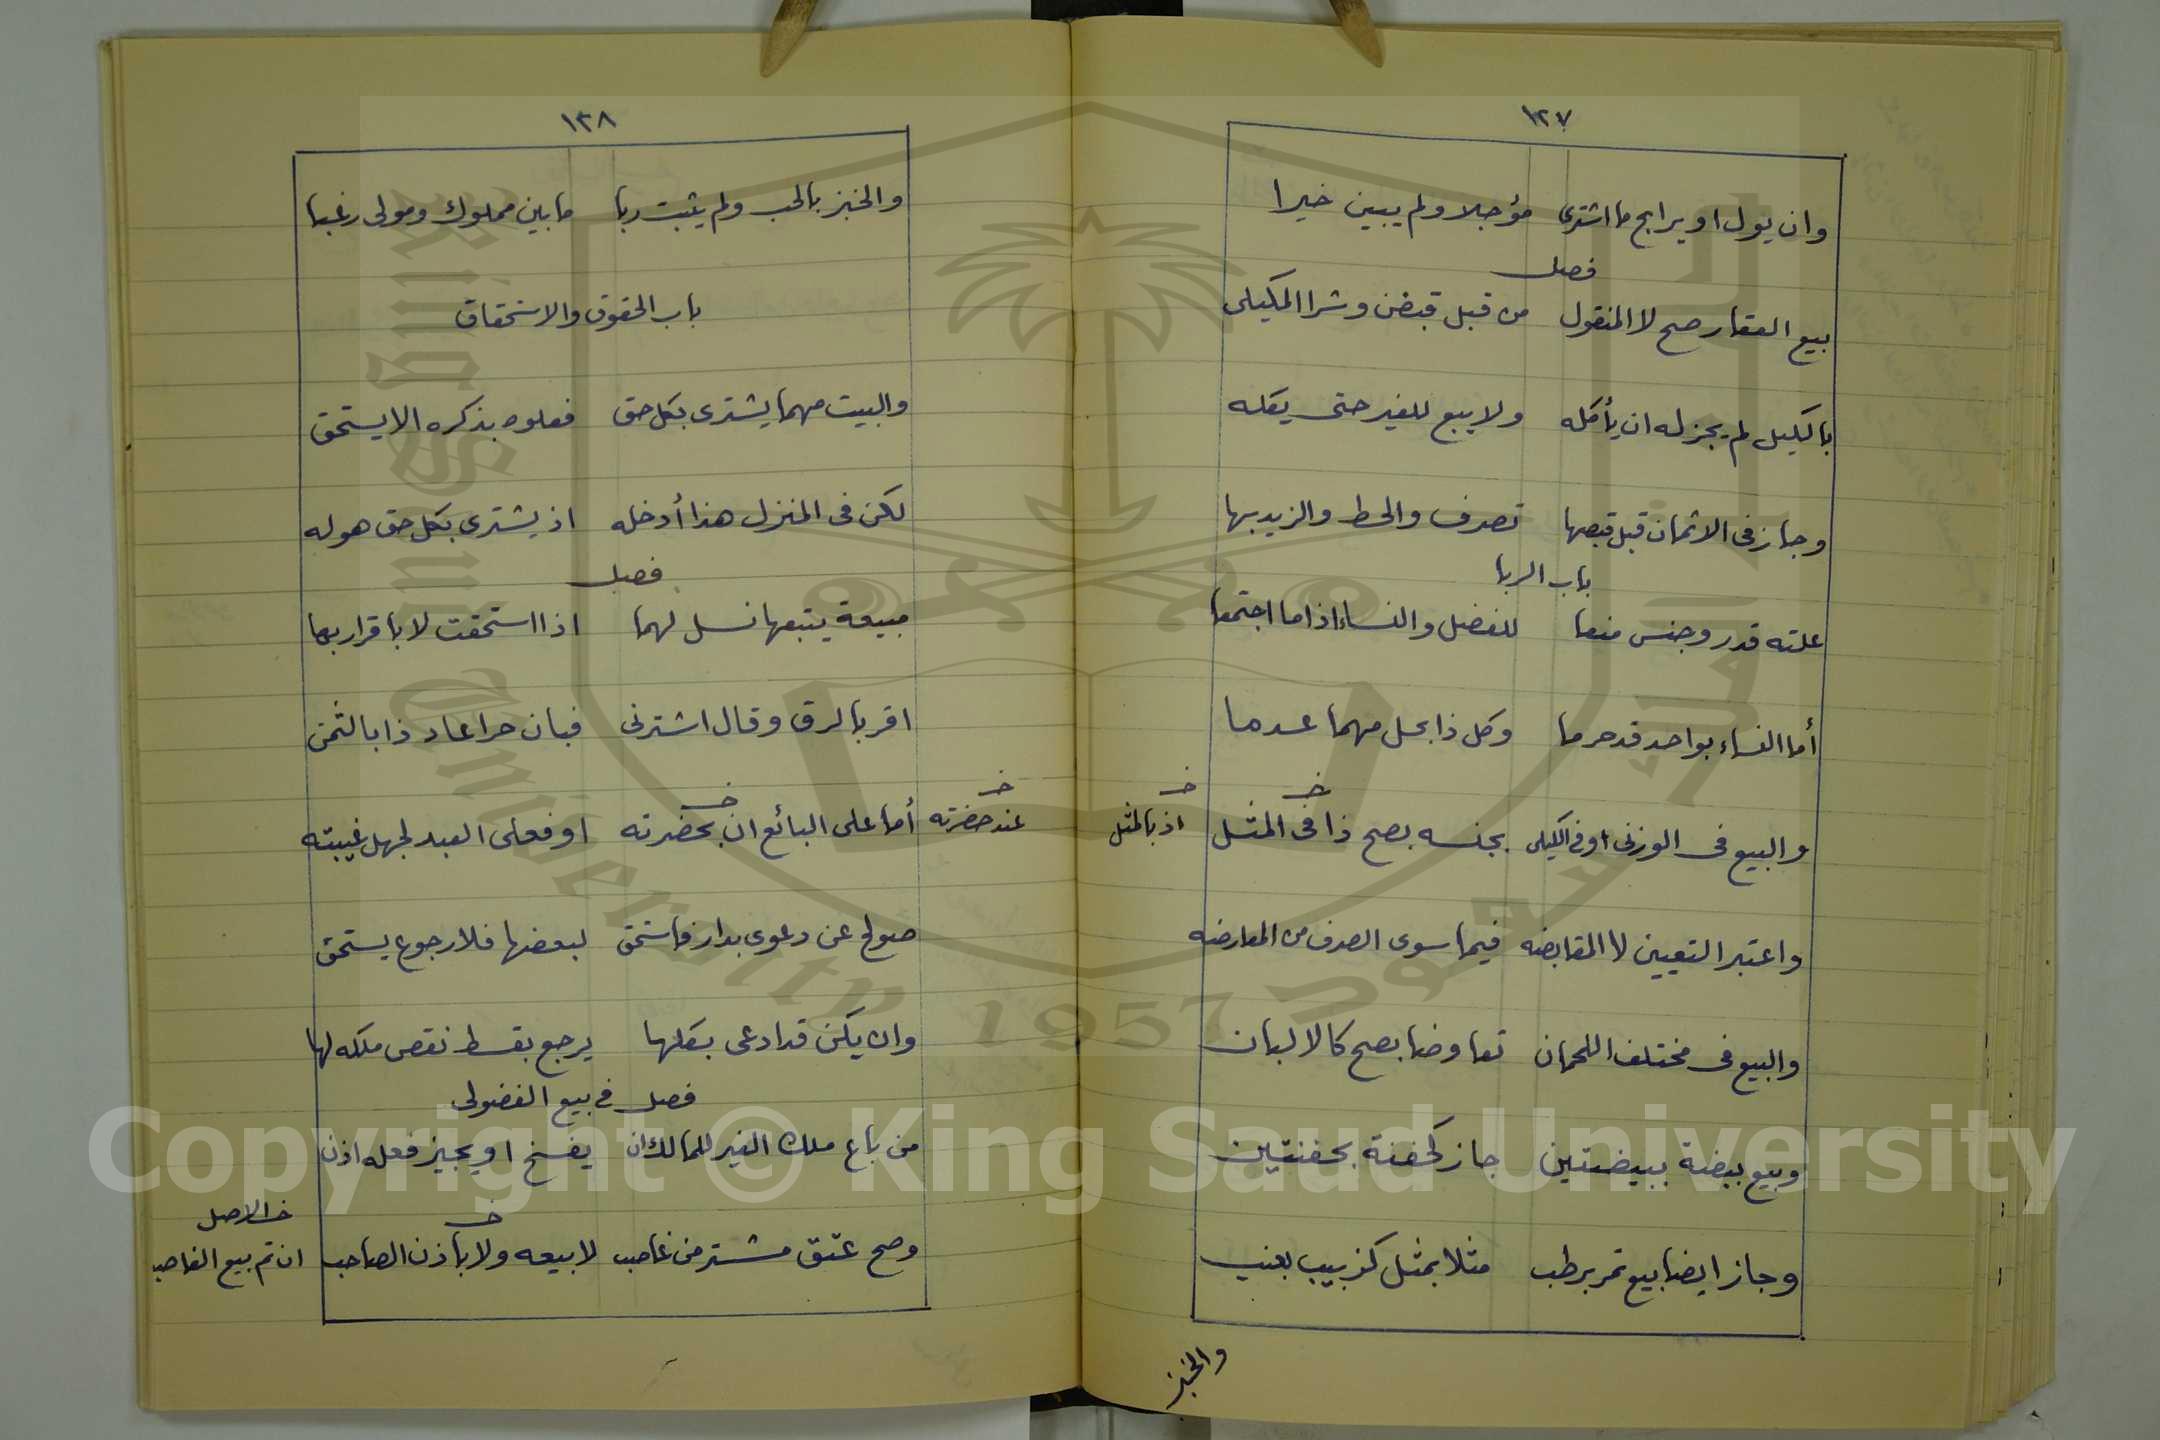 ١٢٧
وان يول او يرابح ما اشترى مؤجلا ولم يبين خيرا
فصل
بيع العقار صح لا المنقول من قبل قبض وشرا المكيلى
بالكيل لم يجز له ان يأكله ولا يبع للغير حتى يكله
وجاز فى الاثمان قبل قبصها تصرف والحط والزيد بها
باب الربا
علته قدر وجنس منعا للفضل والنساء اذا ما اجتمعا
أما النساء بواحد قد حرما وكل ذا يحل مهما عدما
والبيع فى الوزنى او فى الكيلى بجنسه يصح ذا فى المثل خـ
خـ اذ بالمثل
واعتبر التعيين لا المقابضه فيما سوى الصرف من المعارضه
والبيع فى مختلف اللحمان تعاوضا يصح كالالبان
وبيع بيضة ببيضتين جاز كحفنة بحفنتين
وجاز ايضا بيع تمر برطب مثلا بمثل كزبيب بعنب
والخبز
١٣٨
والخبز بالحب ولم يثبت ربا ما بين مملوك ومولى رغبا
باب الحقوق والاستحقاق
والبيت مهما يشترى بكل حق فعلوه بذكره الا يستحق
لكن فى المنزل هذا أدخله اذ يشترى بكل حق هو له
فصل
مبيعة يتبعها نسل لهما اذا استحقت لا باقرار بها
اقر بالرق وقال اشترنى فبان حرا عاد ذا بالثمن
أما على البائع ان بحضرته خـ او فعلى العبد لجهل غيبته
خـ عند حضرته
صولح عن دعوى بدار فاستحق لبعضها فلا رجوع يستحق
وان يكن قد ادعى بكلها يرجع بقسط نقص ملكه لها
فصل فى بيع الفضولى
من باع ملك الغير للمالك ان يفسخ او يجيز فعله اذن
وصح عتق مشتر من غاصب لا بيعه ولا باذن الصاحب خـ
خـ الاصل
ان تم بيع الغاصب
King Saud University
1957
Copyright © King Saud University